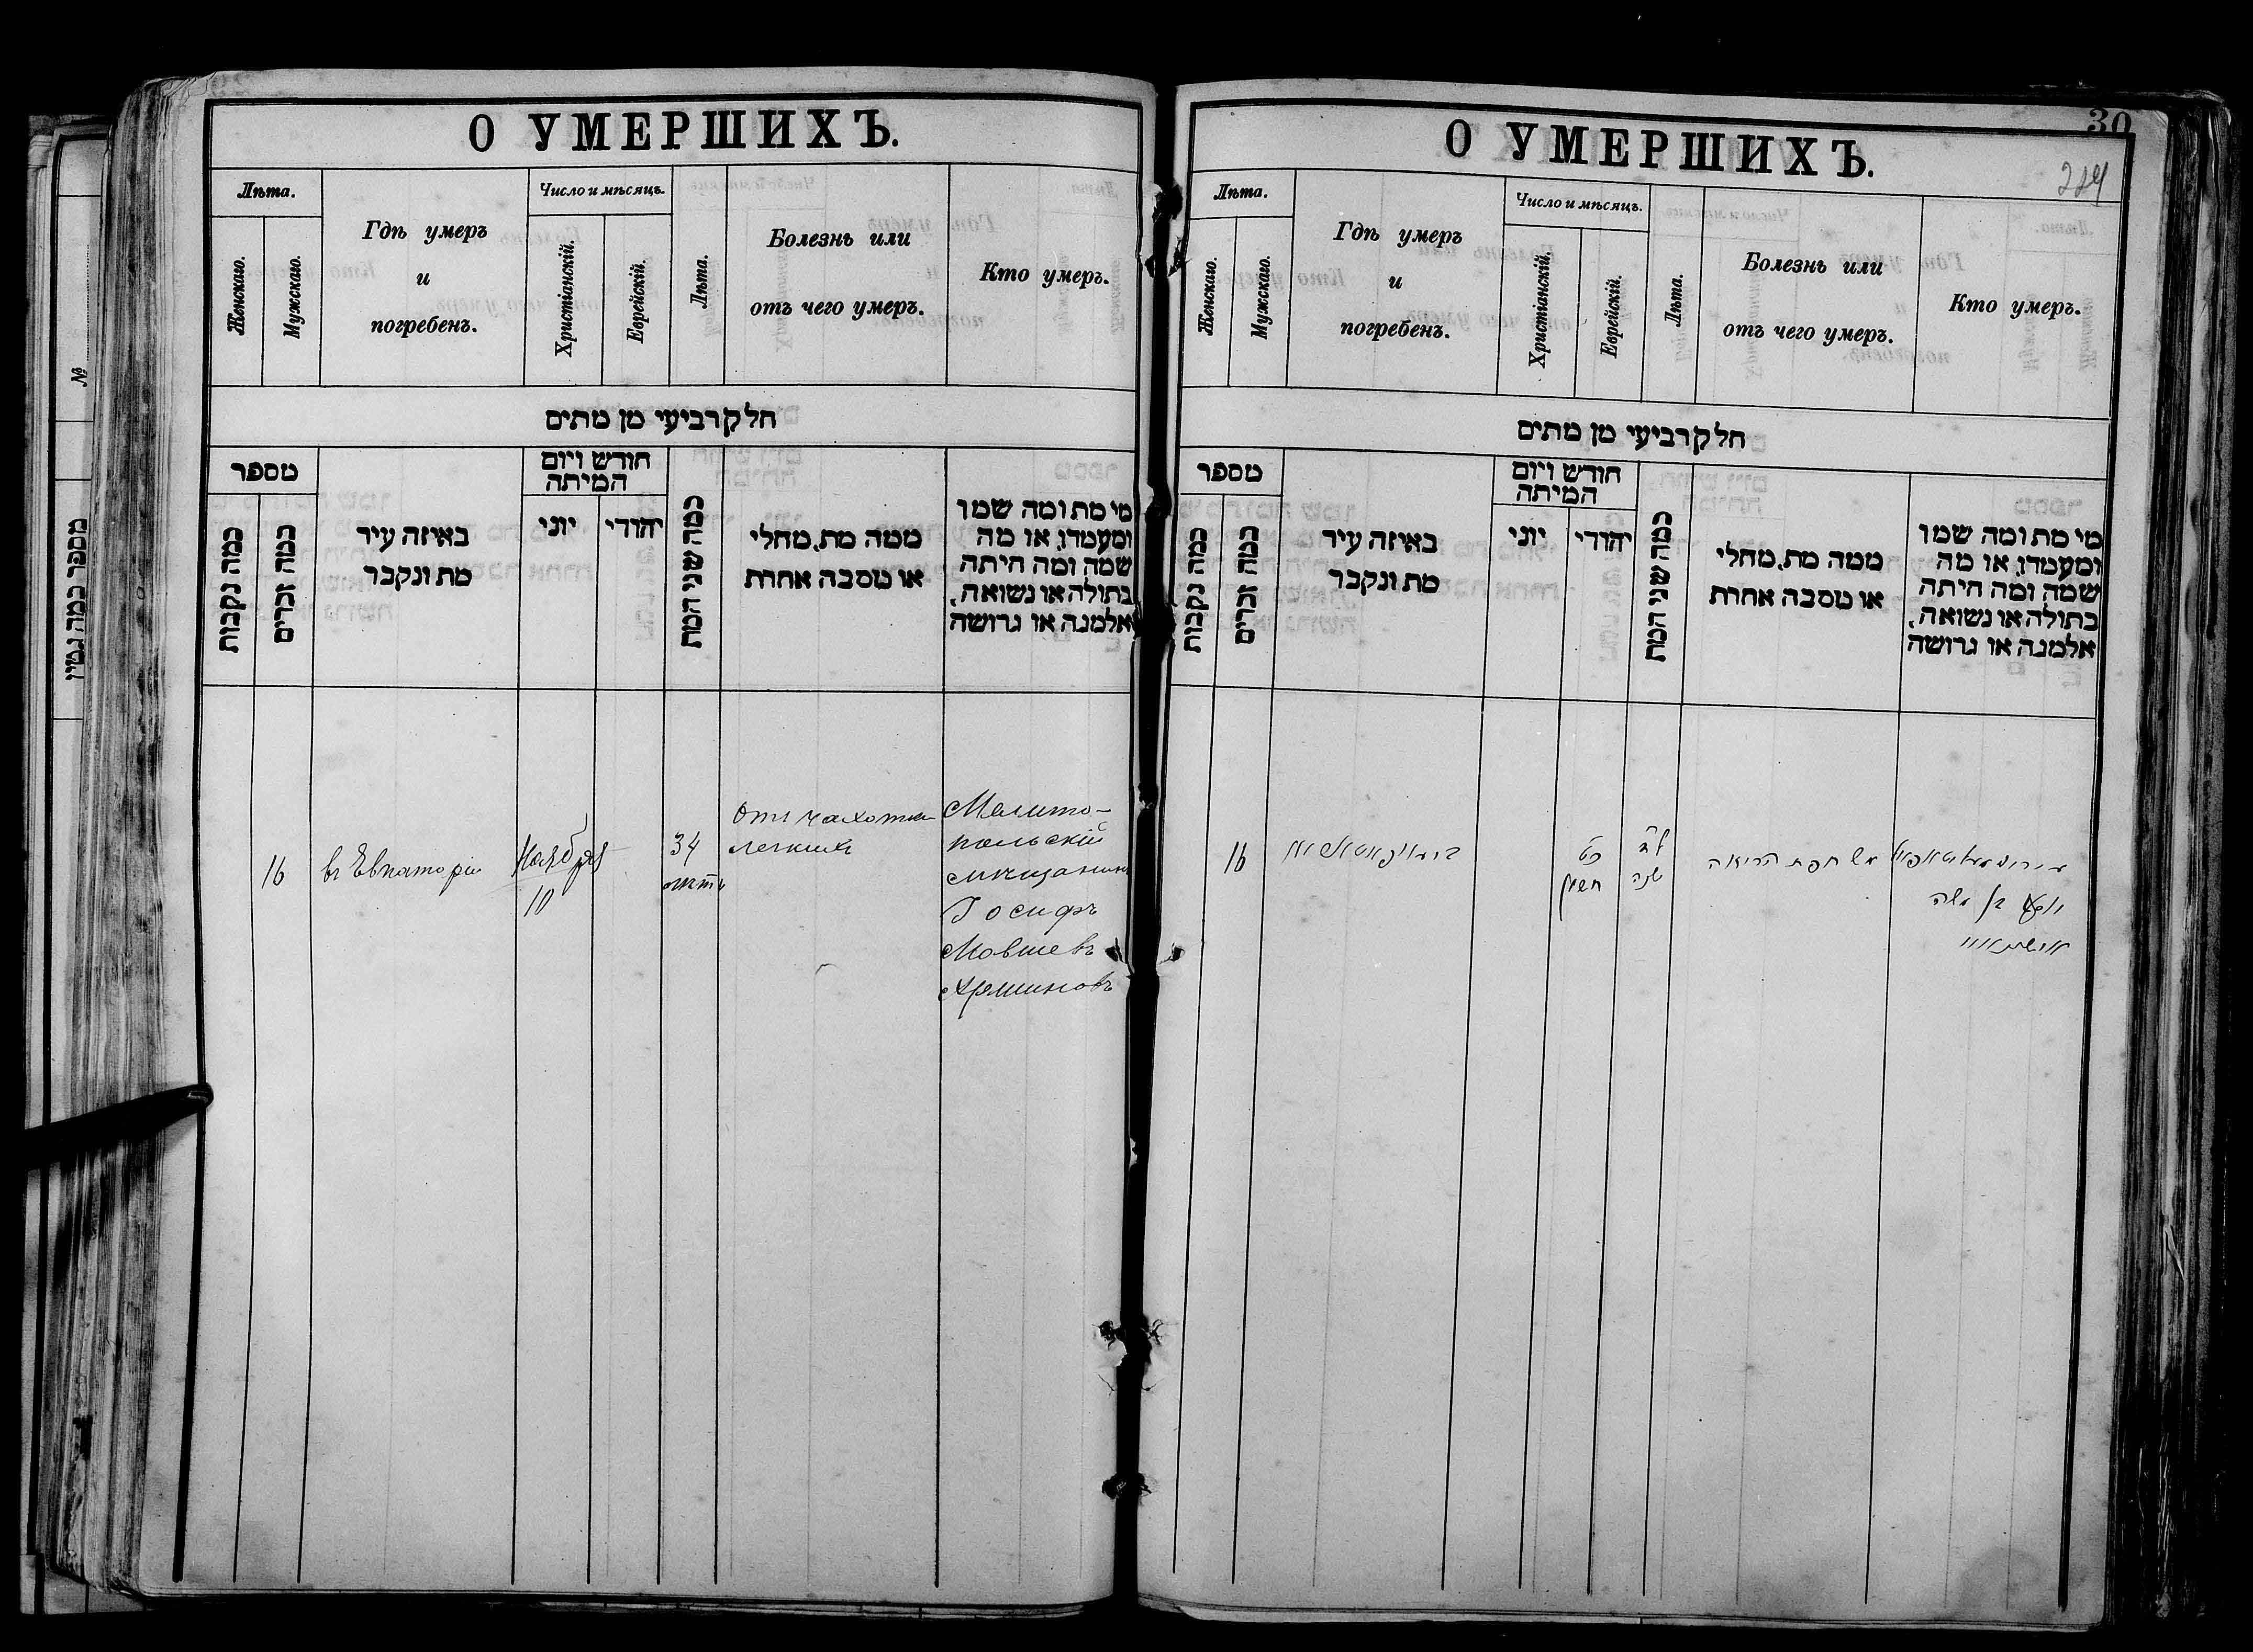 О УМЕРШИХЪ.
Лѣта.
Женскаго.
Мужскаго.
Гдѣ умеръ
и
погребенъ.
Число и мѣсяцъ.
Христіанскій.
Еврейскій.
Лѣта.
Болезнь или
отъ чего умеръ.
Кто умеръ.
חלק רביעי מן מתים
מספר
כמה נקבות
כמה זכרים
באיזה עיר
מת ונקבר
חודש ויום
המיתה
יוני
יהודי
כמה שני המת
ממה מת, מחלי
או מסבה אחרת
מי מת ומה שמו
ומעמדו, או מה
שמה ומה היתה
בתולה או נשואה,
אלמנה או גרושה
16
въ Евпаторіи
Ноября
10
34
лѣтъ
Отъ чахотки
легкихъ
Мелито-
польскій
мѣщанинъ
Іосифъ
Мовшевъ
№
מספר כמה גטין
О УМЕРШИХЪ.
30
224
Лѣта.
Женскаго.
Мужскаго.
Гдѣ умеръ
и
погребенъ.
Число и мѣсяцъ.
Христіанскій.
Еврейскій.
Лѣта.
Болезнь или
отъ чего умеръ.
Кто умеръ.
חלק רביעי מן מתים
מספר
כמה נקבות
כמה זכרים
באיזה עיר
מת ונקבר
חודש ויום
המיתה
יוני
יהודי
כמה שני המת
ממה מת, מחלי
או מסבה אחרת
מי מת ומה שמו
ומעמדו, או מה
שמה ומה היתה
בתולה או נשואה,
אלמנה או גרושה
16
חשון
לד
שנה
שחפת הריאה
בן משה